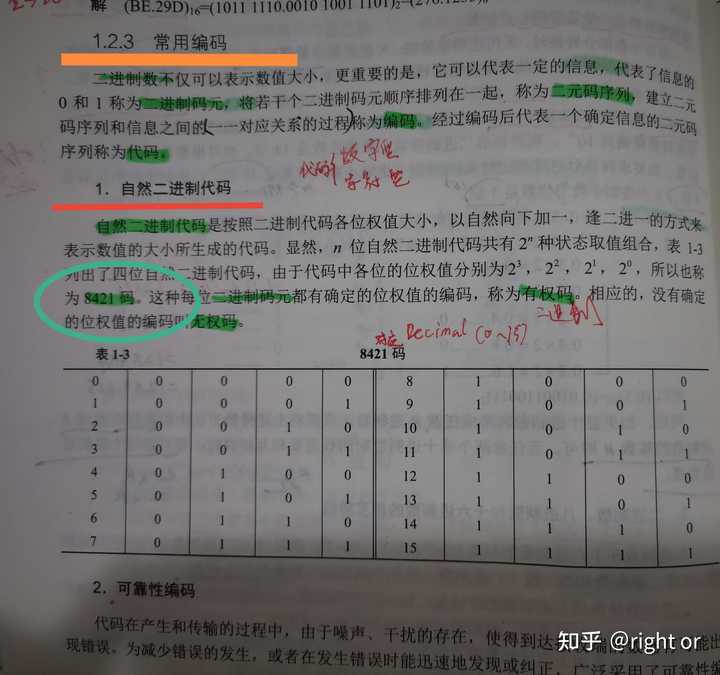 解 (BE.29D)₁₆=(1011 1110.0010 1001 1101)₂=(276.1235)₈
1.2.3 常用编码
二进制数不仅可以表示数值大小，更重要的是，它可以代表一定的信息，代表了信息的
0 和 1 称为二进制码元，将若干个二进制码元顺序排列在一起，称为二元码序列，建立二元
码序列和信息之间的一一对应关系的过程称为编码。经过编码后代表一个确定信息的二元码
序列称为代码。
代码的
1．自然二进制代码
自然二进制代码是按照二进制代码各位权值大小，以自然向下加一，逢二进一的方式来
表示数值的大小所生成的代码。显然，n 位自然二进制代码共有 2ⁿ 种状态取值组合，表 1-3
列出了四位自然二进制代码，由于代码中各位的位权值分别为 2³，2²，2¹，2⁰，所以也称
为 8421 码。这种每位二进制码元都有确定的位权值的编码，称为有权码。相应的，没有确定
的位权值的编码叫无权码。
对应 Decimal (0~15)
二进制
表 1-3 8421 码
0 0 0 0 0 8 1 0 0 0
1 0 0 0 1 9 1 0 0 1
2 0 0 1 0 10 1 0 1 0
3 0 0 1 1 11 1 0 1 1
4 0 1 0 0 12 1 1 0 0
5 0 1 0 1 13 1 1 0 1
6 0 1 1 0 14 1 1 1 0
7 0 1 1 1 15 1 1 1 1
2．可靠性编码
代码在产生和传输的过程中，由于噪声、干扰的存在，使得到达
现错误。为减少错误的发生，或者在发生错误时能迅速地发现或纠正，广泛采用了可靠性编
知乎 @right or